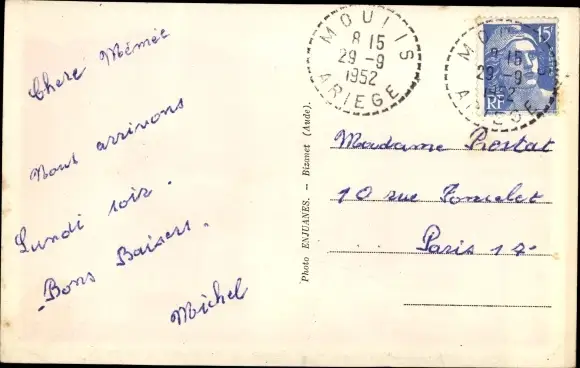 Chere Mémé
Nous arrivons
Lundi soir.
Bons Baisers.
Michel
Photo ENJUANES. — Bizanet (Aude).
MOULIS
8 15
29 -9
1952
ARIEGE
MOULIS
8 15
29 -9
1952
ARIEGE
15F
RF
Madame Prostat
10 rue Poncelet
Paris 17